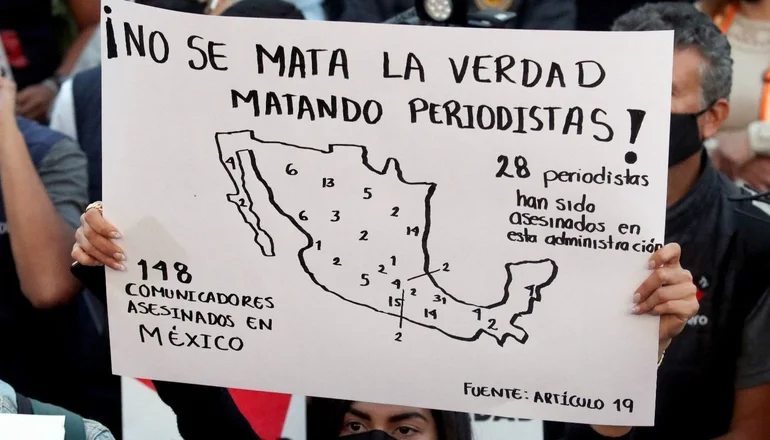 ¡NO SE MATA LA VERDAD
MATANDO PERIODISTAS!
28 periodistas
han sido
asesinados en
esta administración
4
6
13
5
2
6
3
2
14
2
1
2
2
1
2
5
4
2
15
31
14
2
4
2
1
148
COMUNICADORES
ASESINADOS EN
MÉXICO
FUENTE: ARTÍCULO 19